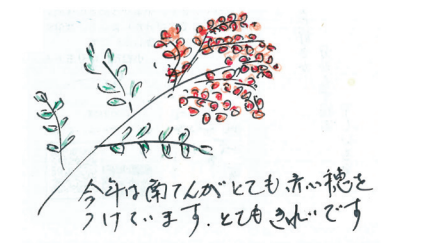 今年は南てんがとても赤い穂を
つけています.とてもきれいです